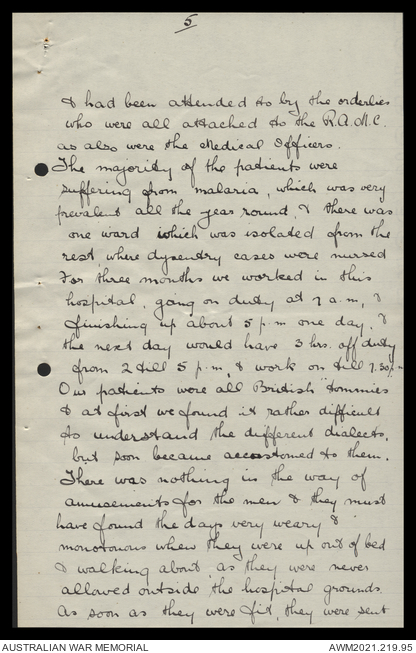 5
& had been attended to by the orderlies
who were all attached to the R.A.M.C.
as also were the Medical Officers.
The majority of the patients were
suffering from malaria, which was very
prevalent all the year round, & there was
one ward which was isolated from the
rest, where dysentry cases were nursed
For three months we worked in this
hospital, going on duty at 7 a.m, &
finishing up about 5 p.m one day, &
the next day would have 3 hrs. off duty
from 2 till 5 p.m, & work on till 7.30 p.m
Our patients were all British Tommies
& at first we found it rather difficult
to understand the different dialects,
but soon became accustomed to them.
There was nothing in the way of
amusements for the men & they must
have found the days very weary &
monotonous when they were up out of bed
& walking about, as they were never
allowed outside the hospital grounds.
As soon as they were fit, they were sent
AUSTRALIAN WAR MEMORIAL
AWM2021.219.95